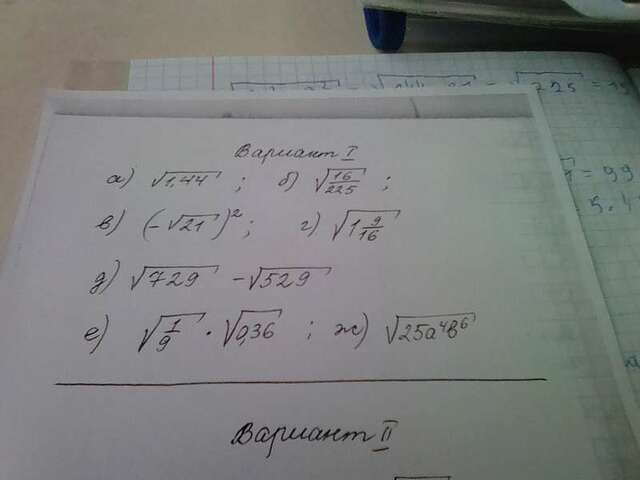 √225 = 15
Вариант I
а) √1,44 ; б) √16/225 ;
= 99
в) (-√21)² ; г) √1 9/16
5.4
д) √729 - √529
е) √1/9 · √0,36 ; ж) √25a⁴b⁶
Вариант II